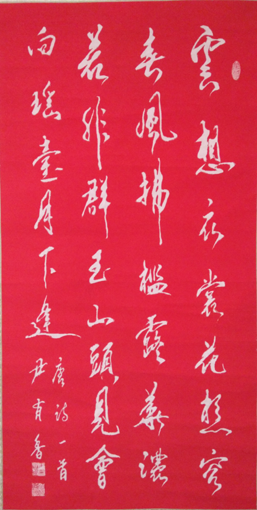 雲想衣裳花想容
春風拂檻露華濃
若非群玉山頭見會
向瑤臺月下逢
唐詩一首